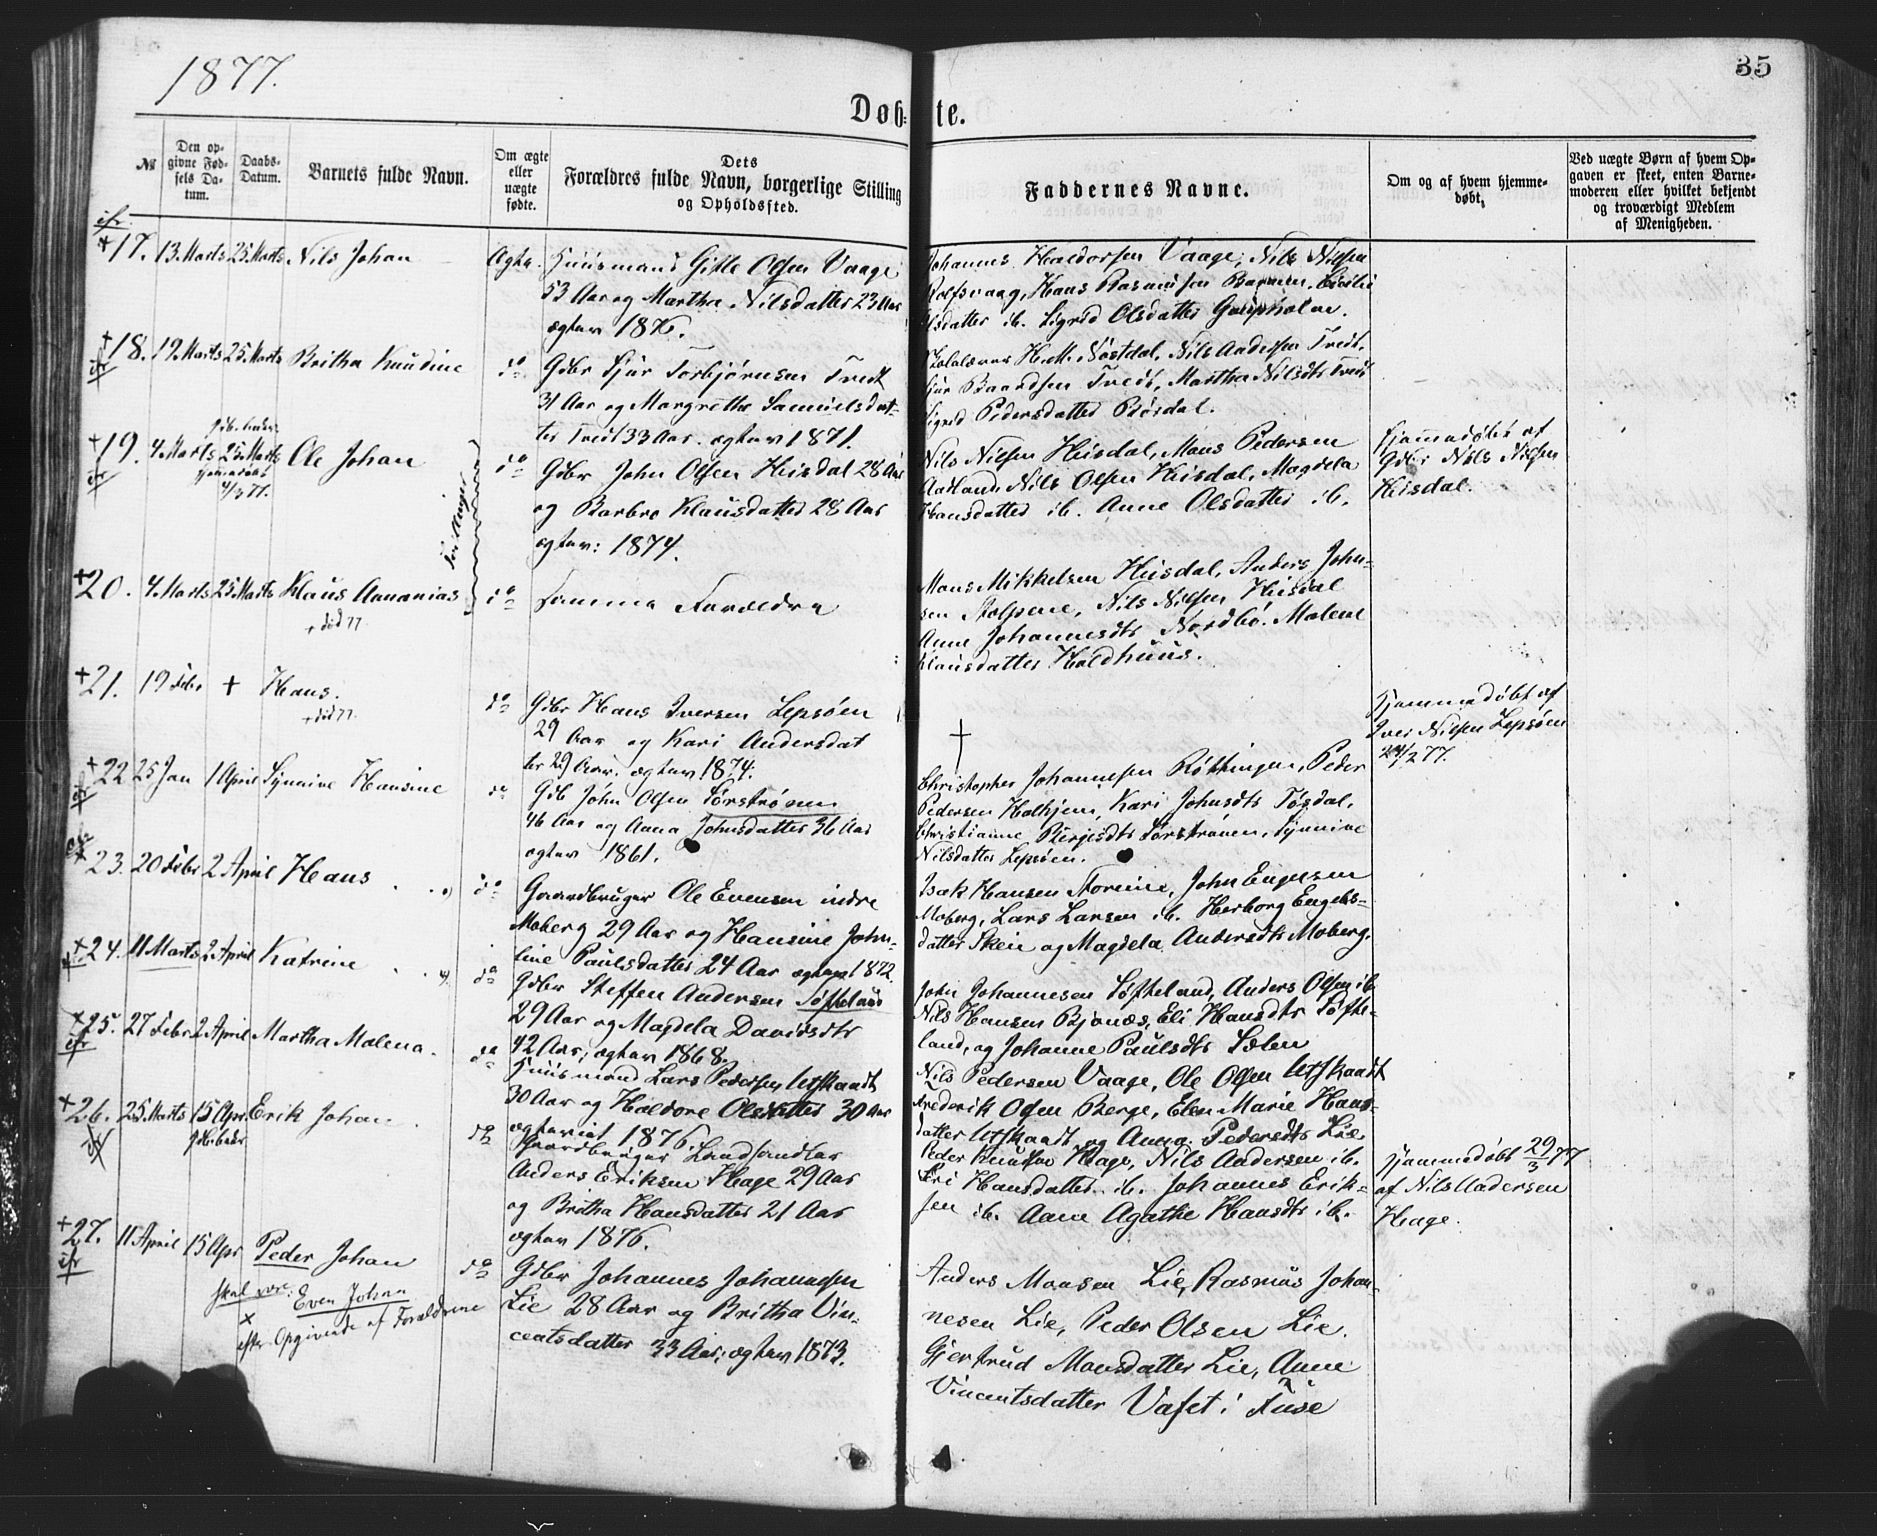 1877.
35
Døb-te.
№
Den op-
givne Fød-
sels Da-
tum.
Daabs-
Datum.
Barnets fulde Navn.
Om ægte
eller
uægte
fødte.
Dets
Forældres fulde Navn, borgerlige Stilling
og Opholdssted.
Faddernes Navne.
Om og af hvem hjemme-
døbt.
Ved uægte Børn af hvem Op-
gaven er skeet, enten Barne-
moderen eller hvilket bekjendt
og troværdigt Medlem
af Menigheden.
17. 13 Marts 25 Marts Nils Johan Ægte. Huusmand Gitle Olsen Vaage
53 Aar og Martha Nilsdatter 23 Aar
ægtev 1876.
Johannes Haldorsen Vaage, Nils Nilsen
Rolfsvaag, Hans Rasmussen
Olsdatter ib. Sigrid Olsdatter
18. 19 Marts 25 Marts Britha Knudine do Gdbr Sjur Torbjørnsen Tveit
31 Aar og Margrethe Samuelsdat-
ter Tveit 33 Aar. ægtev 1871.
H. M. Nøstdal, Nils Andersen Tveit,
Sjur Baardsen Tveit, Martha Nilsdtr Tveit
Sigrid Pedersdatter Røsdal.
19. 4 Marts 25 Marts Ole Johan do Gdbr John Olsen Heisdal 28 Aar
og Barbro Klausdatter 28 Aar
ægtev: 1874.
hjemmedøbt
4/3 77.
Nils Nilsen Heisdal, Mons Pedersen
Aadland, Nils Olsen Heisdal, Magdela
Hansdatter ib. Anne Olsdatter ib.
Hjemmedøbt af
Gdbr Nils Nilsen
Heisdal.
20. 4 Marts 25 Marts Klaus Annanias do Samme Forældre
+ død 77.
Mons Mikkelsen Heisdal, Anders John-
sen Stolpene, Nils Nilsen Heisdal
Anne Johannesdtr Nordbø. Malene
Klausdatter Holdhuus.
21. 19 Febr + Hans. do Gdbr Hans Iversen Lepsøen
+ død 77.
29 Aar og Kari Andersdat
ter 29 Aar. ægtev 1874.
+
Hjemmedøbt af
Iver Nilsen Lepsøen
24/2 77.
22 25 Jan 1 April Synnive Hansine do Gdb John Olsen Sørstrønen
46 Aar og Anna Johnsdatter 36 Aar
ægtev 1861.
Christopher Johannessen Røttingen, Peder
Pedersen Halhjem, Kari Johnsdtr Tøsdal,
Christianne Børgesdtr Sørstrønen, Synnive
Nilsdatter Lepsøen.
23. 20 Febr 2 April Hans do Gaardbruger Ole Evensen indre
Moberg 29 Aar og Hansine John-
line Paulsdatter 24 Aar ægtev 1872.
Isak Hansen Storeime, John Engelsen
Moberg, Lars Larsen ib. Herborg Engels-
datter Skeie og Magdela Andersdtr Moberg.
24. 11 Marts 2 April Katrine do Gdbr Steffen Andersen Søfteland
29 Aar og Magdela Davidsdtr
42 Aar; ægtev 1868.
John Johannesen Søfteland, Anders Olsen ib
Nils Hansen Bjønæs, Eli Hansdtr Søfte-
land, og Johanne Paulsdtr Sælen
25. 27 Febr 2 April Martha Malena. do Huusmand Lars Pedersen Utskaadt
30 Aar og Haldore Olsdatter 30 Aar
ægteviet 1876.
Nils Pedersen Vaage, Ole Olsen Utskaadt
Frederik Olsen Berge, Elen Marie Hans-
datter Utskaadt og Anna Pedersdtr Lie.
26. 25 Marts 15 Apr Erik Johan do Gaardbruger Landhandler
Anders Eriksen Hage 29 Aar
og Britha Hansdatter 21 Aar
ægtev 1876.
Peder Knudsen Hage, Nils Andersen ib.
Hansdatter ib. Johannes Erik-
sen ib. Anne Agathe Hansdtr ib.
Hjemmedøbt 29/3 77
af Nils Andersen
Hage.
27. 11 April 15 Apr Peder Johan do Gdbr Johannes Johannesen
Lie 28 Aar og Britha Vin-
centsdatter 33 Aar; ægtev 1873.
skal være: Even Johan
efter Opgivende af Forældrene
Anders Monsen Lie, Rasmus Johan-
nesen Lie, Peder Olsen Lie.
Gjertrud Monsdatter Lie, Anne
Vincentsdatter Vafet i Fuse